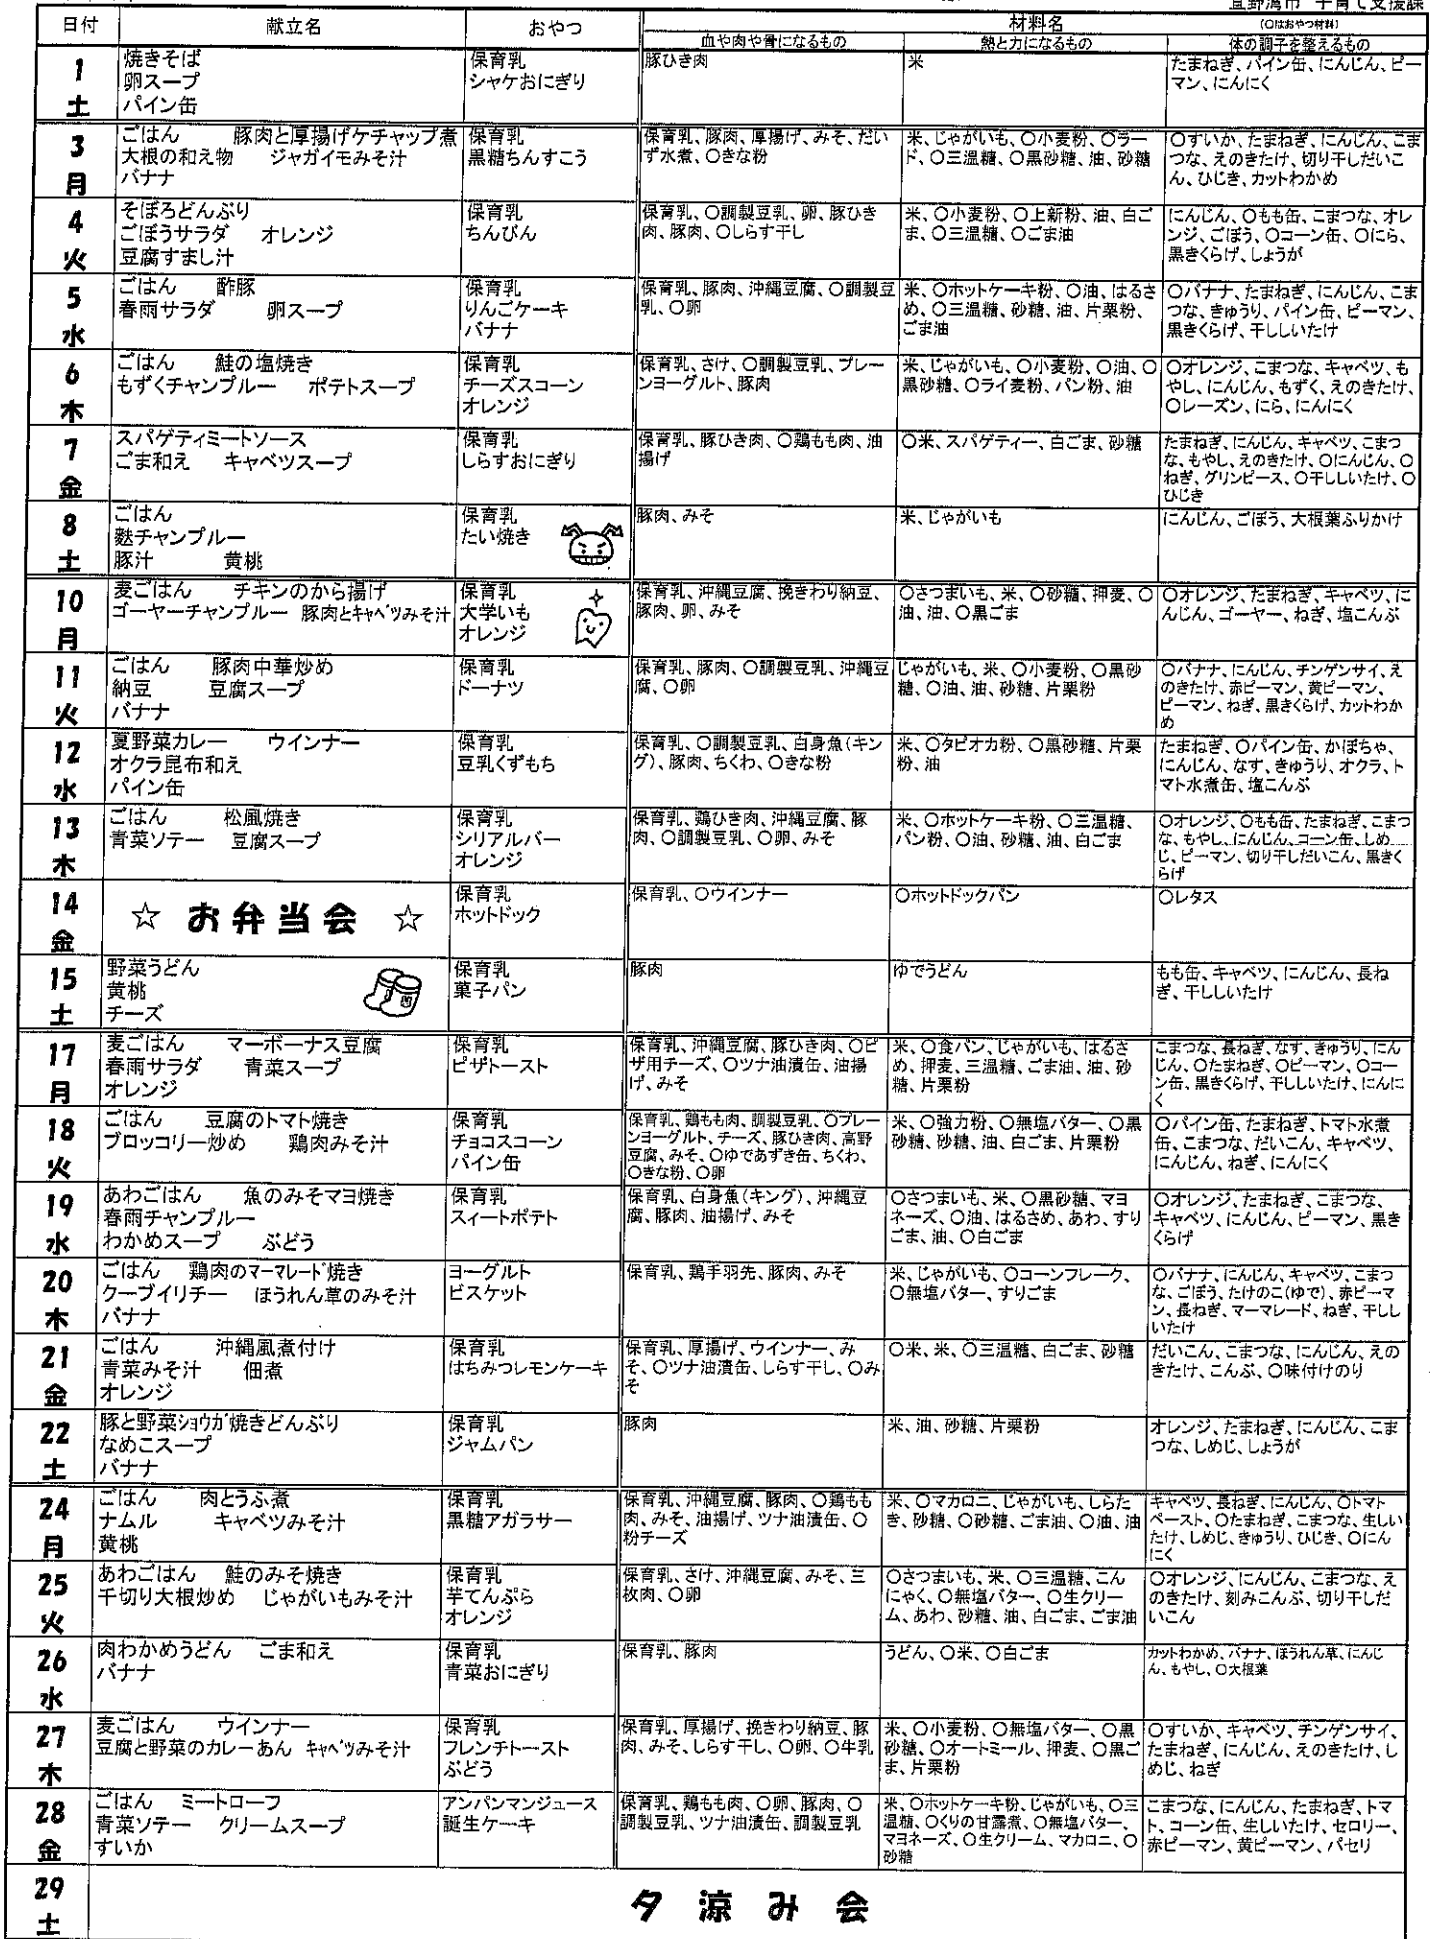 宜野湾市 子育て支援課
日付 献立名 おやつ 材料名 (〇はおやつ材料)
血や肉や骨になるもの 熱と力になるもの 体の調子を整えるもの
1 土
焼きそば
卵スープ
パイン缶
保育乳
シャケおにぎり
豚ひき肉
米
たまねぎ、パイン缶、にんじん、ピー
マン、にんにく
3 月
ごはん 豚肉と厚揚げケチャップ煮
大根の和え物 ジャガイモみそ汁
バナナ
保育乳
黒糖ちんすこう
保育乳、豚肉、厚揚げ、みそ、だい
ず水煮、〇きな粉
米、じゃがいも、〇小麦粉、〇ラー
ド、〇三温糖、〇黒砂糖、油、砂糖
〇すいか、たまねぎ、にんじん、こま
つな、えのきたけ、切り干しだいこ
ん、ひじき、カットわかめ
4 火
そぼろどんぶり
ごぼうサラダ オレンジ
豆腐すまし汁
保育乳
ちんびん
保育乳、〇調製豆乳、卵、豚ひき
肉、豚肉、〇しらす干し
米、〇小麦粉、〇上新粉、油、白ご
ま、〇三温糖、〇ごま油
にんじん、〇もも缶、こまつな、オレ
ンジ、ごぼう、〇コーン缶、〇にら、
黒きくらげ、しょうが
5 水
ごはん 酢豚
春雨サラダ 卵スープ
保育乳
りんごケーキ
バナナ
保育乳、豚肉、沖縄豆腐、〇調製豆
乳、〇卵
米、〇ホットケーキ粉、〇油、はるさ
め、〇三温糖、砂糖、油、片栗粉、
ごま油
〇バナナ、たまねぎ、にんじん、こま
つな、きゅうり、パイン缶、ピーマン、
黒きくらげ、干ししいたけ
6 木
ごはん 鮭の塩焼き
もずくチャンプルー ポテトスープ
保育乳
チーズスコーン
オレンジ
保育乳、さけ、〇調製豆乳、プレー
ンヨーグルト、豚肉
米、じゃがいも、〇小麦粉、〇油、〇
黒砂糖、〇ライ麦粉、パン粉、油
〇オレンジ、こまつな、キャベツ、も
やし、にんじん、もずく、えのきたけ、
〇レーズン、にら、にんにく
7 金
スパゲティミートソース
ごま和え キャベツスープ
保育乳
しらすおにぎり
保育乳、豚ひき肉、〇鶏もも肉、油
揚げ
〇米、スパゲティー、白ごま、砂糖
たまねぎ、にんじん、キャベツ、こまつ
な、もやし、えのきたけ、〇にんじん、〇
ねぎ、グリンピース、〇干ししいたけ、〇
ひじき
8 土
ごはん
麩チャンプルー
豚汁 黄桃
保育乳
たい焼き
豚肉、みそ
米、じゃがいも
にんじん、ごぼう、大根葉ふりかけ
10 月
麦ごはん チキンのから揚げ
ゴーヤーチャンプルー 豚肉とキャベツみそ汁
保育乳
大学いも
オレンジ
保育乳、沖縄豆腐、挽きわり納豆、
豚肉、卵、みそ
〇さつまいも、米、〇砂糖、押麦、〇
油、油、〇黒ごま
〇オレンジ、たまねぎ、キャベツ、に
んじん、ゴーヤー、ねぎ、塩こんぶ
11 火
ごはん 豚肉中華炒め
納豆 豆腐スープ
バナナ
保育乳
ドーナツ
保育乳、豚肉、〇調製豆乳、沖縄豆
腐、〇卵
じゃがいも、米、〇小麦粉、〇黒砂
糖、〇油、油、砂糖、片栗粉
〇バナナ、にんじん、チンゲンサイ、え
のきたけ、赤ピーマン、黄ピーマン、
ピーマン、ねぎ、黒きくらげ、カットわか
め
12 水
夏野菜カレー ウインナー
オクラ昆布和え
パイン缶
保育乳
豆乳くずもち
保育乳、〇調製豆乳、白身魚(キン
グ)、豚肉、ちくわ、〇きな粉
米、〇タピオカ粉、〇黒砂糖、片栗
粉、油
たまねぎ、〇パイン缶、かぼちゃ、
にんじん、なす、きゅうり、オクラ、ト
マト水煮缶、塩こんぶ
13 木
ごはん 松風焼き
青菜ソテー 豆腐スープ
保育乳
シリアルバー
オレンジ
保育乳、鶏ひき肉、沖縄豆腐、豚
肉、〇調製豆乳、〇卵、みそ
米、〇ホットケーキ粉、〇三温糖、
パン粉、〇油、砂糖、油、白ごま
〇オレンジ、〇もも缶、たまねぎ、こまつ
な、もやし、にんじん、コーン缶、しめ
じ、ピーマン、切り干しだいこん、黒きく
らげ
14 金
☆ お弁当会 ☆
保育乳
ホットドック
保育乳、〇ウインナー
〇ホットドックパン
〇レタス
15 土
野菜うどん
黄桃
チーズ
保育乳
菓子パン
豚肉
ゆでうどん
もも缶、キャベツ、にんじん、長ね
ぎ、干ししいたけ
17 月
麦ごはん マーボーナス豆腐
春雨サラダ 青菜スープ
オレンジ
保育乳
ピザトースト
保育乳、沖縄豆腐、豚ひき肉、〇ピ
ザ用チーズ、〇ツナ油漬缶、油揚
げ、みそ
米、〇食パン、じゃがいも、はるさ
め、押麦、三温糖、ごま油、油、砂
糖、片栗粉
こまつな、長ねぎ、なす、きゅうり、にん
じん、〇たまねぎ、〇ピーマン、〇コー
ン缶、黒きくらげ、干ししいたけ、にんに
く
18 火
ごはん 豆腐のトマト焼き
ブロッコリー炒め 鶏肉みそ汁
保育乳
チョコスコーン
パイン缶
保育乳、鶏もも肉、調製豆乳、〇プレー
ンヨーグルト、チーズ、豚ひき肉、高野
豆腐、みそ、〇ゆであずき缶、ちくわ、
〇きな粉、〇卵
米、〇強力粉、〇無塩バター、〇黒
砂糖、砂糖、油、白ごま、片栗粉
〇パイン缶、たまねぎ、トマト水煮
缶、こまつな、だいこん、キャベツ、
にんじん、ねぎ、にんにく
19 水
あわごはん 魚のみそマヨ焼き
春雨チャンプルー
わかめスープ ぶどう
保育乳
スィートポテト
保育乳、白身魚(キング)、沖縄豆
腐、豚肉、油揚げ、みそ
〇さつまいも、米、〇黒砂糖、マヨ
ネーズ、〇油、はるさめ、あわ、すり
ごま、油、〇白ごま
〇オレンジ、たまねぎ、こまつな、
キャベツ、にんじん、ピーマン、黒き
くらげ
20 木
ごはん 鶏肉のマーマレード焼き
クーブイリチー ほうれん草のみそ汁
バナナ
ヨーグルト
ビスケット
保育乳、鶏手羽先、豚肉、みそ
米、じゃがいも、〇コーンフレーク、
〇無塩バター、すりごま
〇バナナ、にんじん、キャベツ、こまつ
な、ごぼう、たけのこ(ゆで)、赤ピーマ
ン、長ねぎ、マーマレード、ねぎ、干しし
いたけ
21 金
ごはん 沖縄風煮付け
青菜みそ汁 佃煮
オレンジ
保育乳
はちみつレモンケーキ
保育乳、厚揚げ、ウインナー、み
そ、〇ツナ油漬缶、しらす干し、〇み
そ
〇米、米、〇三温糖、白ごま、砂糖
だいこん、こまつな、にんじん、えの
きたけ、こんぶ、〇味付けのり
22 土
豚と野菜ショウガ焼きどんぶり
なめこスープ
バナナ
保育乳
ジャムパン
豚肉
米、油、砂糖、片栗粉
オレンジ、たまねぎ、にんじん、こま
つな、しめじ、しょうが
24 月
ごはん 肉とうふ煮
ナムル キャベツみそ汁
黄桃
保育乳
黒糖アガラサー
保育乳、沖縄豆腐、豚肉、〇鶏もも
肉、みそ、油揚げ、ツナ油漬缶、〇
粉チーズ
米、〇マカロニ、じゃがいも、しらた
き、砂糖、〇砂糖、ごま油、〇油、油
キャベツ、長ねぎ、にんじん、〇トマト
ペースト、〇たまねぎ、こまつな、生しい
たけ、しめじ、きゅうり、ひじき、〇にん
にく
25 火
あわごはん 鮭のみそ焼き
千切り大根炒め じゃがいもみそ汁
保育乳
芋てんぷら
オレンジ
保育乳、さけ、沖縄豆腐、みそ、三
枚肉、〇卵
〇さつまいも、米、〇三温糖、こん
にゃく、〇無塩バター、〇生クリー
ム、あわ、砂糖、油、白ごま、ごま油
〇オレンジ、にんじん、こまつな、え
のきたけ、刻みこんぶ、切り干しだ
いこん
26 水
肉わかめうどん ごま和え
バナナ
保育乳
青菜おにぎり
保育乳、豚肉
うどん、〇米、〇白ごま
カットわかめ、バナナ、ほうれん草、にんじ
ん、もやし、〇大根葉
27 木
麦ごはん ウインナー
豆腐と野菜のカレーあん キャベツみそ汁
保育乳
フレンチトースト
ぶどう
保育乳、厚揚げ、挽きわり納豆、豚
肉、みそ、しらす干し、〇卵、〇牛乳
米、〇小麦粉、〇無塩バター、〇黒
砂糖、〇オートミール、押麦、〇黒ご
ま、片栗粉
〇すいか、キャベツ、チンゲンサイ、
たまねぎ、にんじん、えのきたけ、し
めじ、ねぎ
28 金
ごはん ミートローフ
青菜ソテー クリームスープ
すいか
アンパンマンジュース
誕生ケーキ
保育乳、鶏もも肉、〇卵、豚肉、〇
調製豆乳、ツナ油漬缶、調製豆乳
米、〇ホットケーキ粉、じゃがいも、〇三
温糖、〇くりの甘露煮、〇無塩バター、
マヨネーズ、〇生クリーム、マカロニ、〇
砂糖
こまつな、にんじん、たまねぎ、トマ
ト、コーン缶、生しいたけ、セロリー、
赤ピーマン、黄ピーマン、パセリ
29 土
夕涼み会